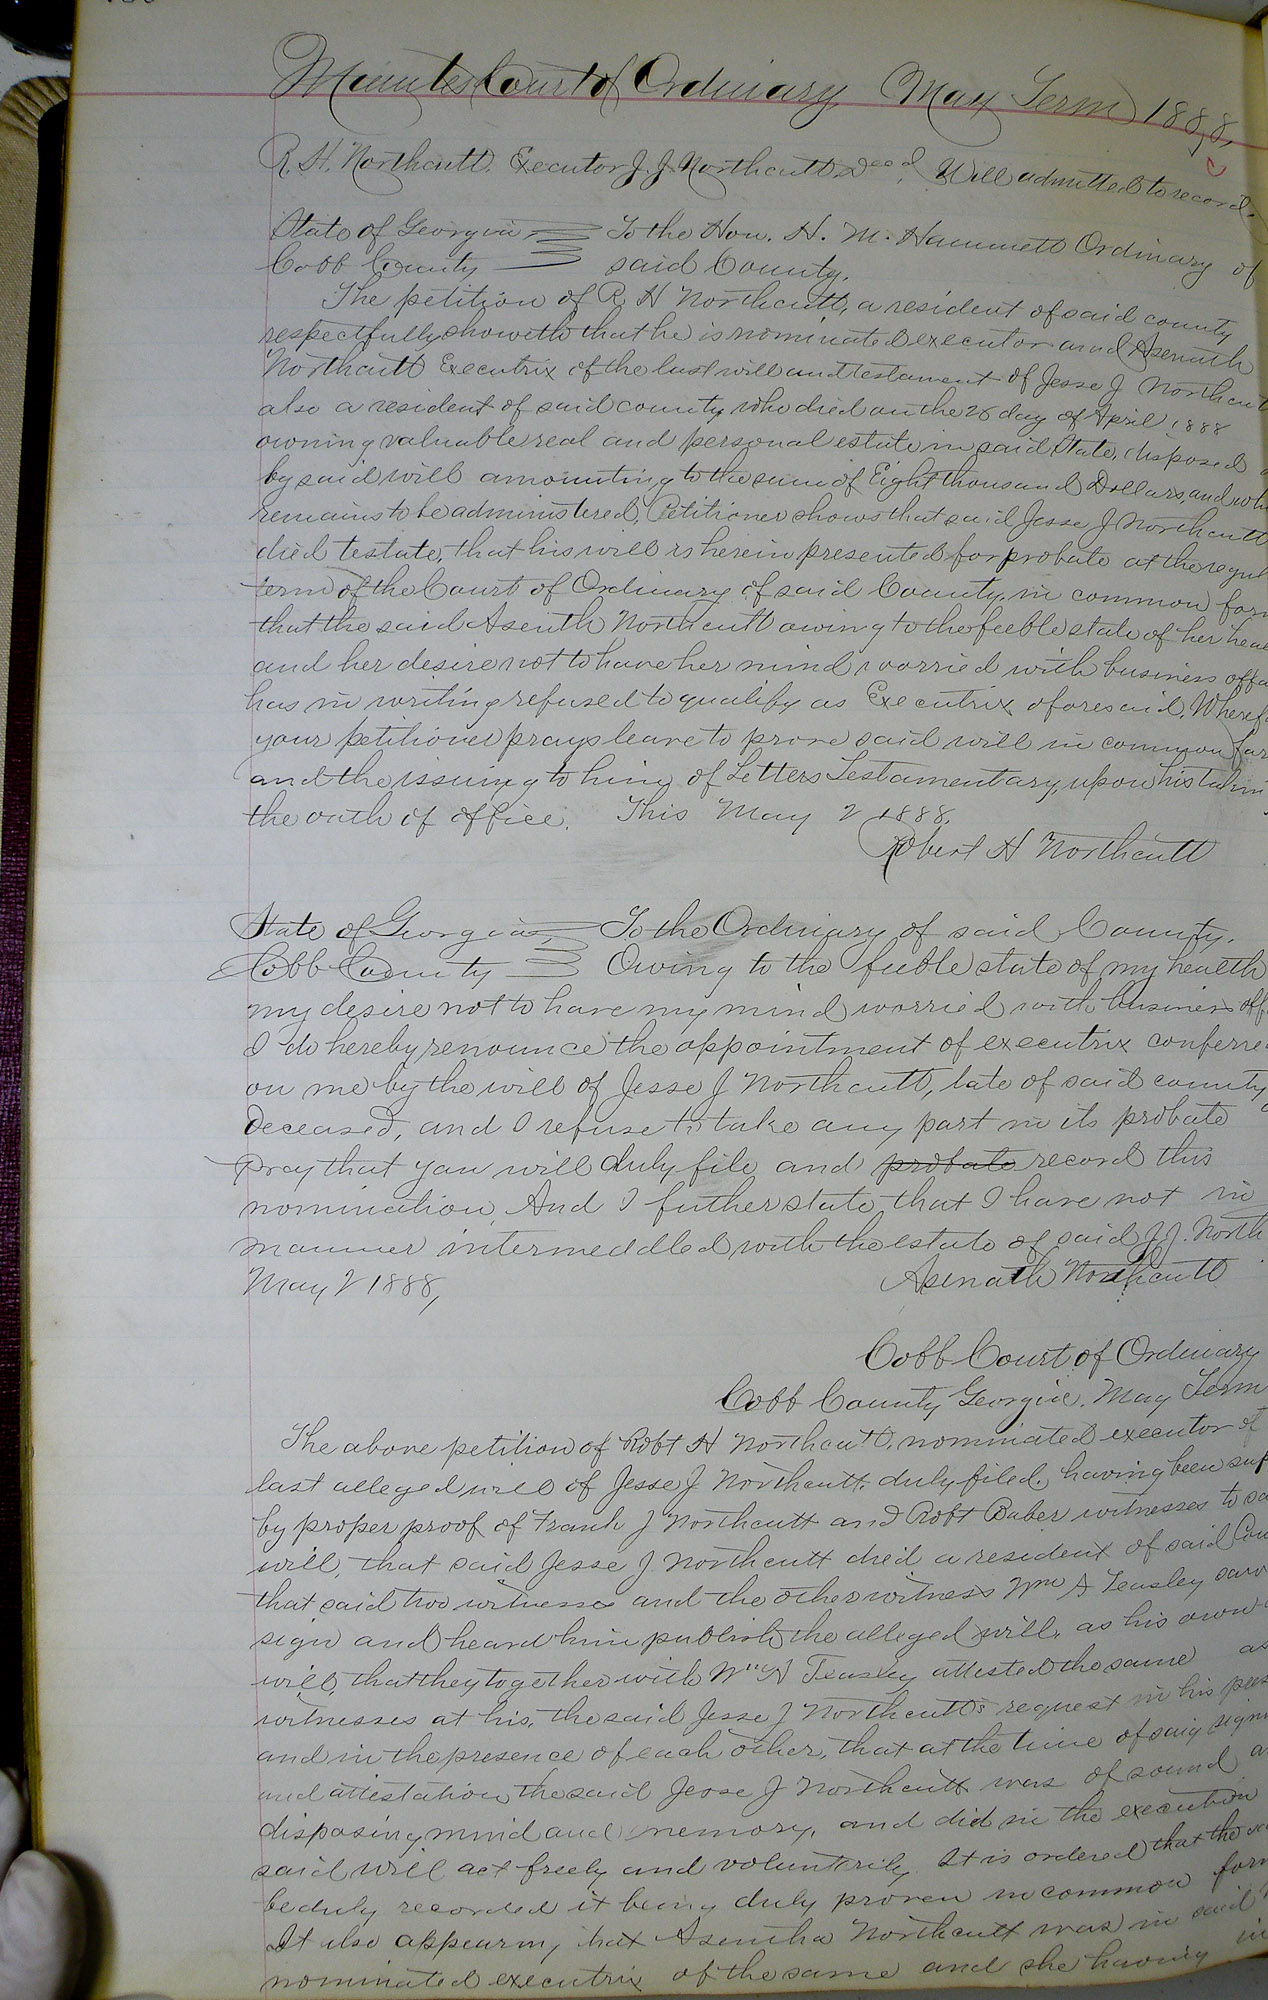 Minutes Court of Ordinary May Term 1888,
R. H. Northcutt. Executor J. J. Northcutt Decd. Will admitted to record.
State of Georgia To the Hon. H. M. Hammett Ordinary of
Cobb County said County.
The petition of R H Northcutt, a resident of said county
respectfully showeth that he is nominated executor and Asenath
Northcutt Executrix of the last will and testament of Jesse J Northcut
also a resident of said county who died on the 26 day of April 1888
owning valuable real and personal estate in said State, disposed
by said will amounting to the sum of Eight thousand Dollars, and wh
remains to be administered. Petitioner shows that said Jesse J Northcutt
died testate, that his will is herein presented for probate at the regul
term of the Court of Ordinary of said County, in common for
that the said Asenth Northcutt owing to the feeble state of her hea
and her desire not to have her mind worried with business affa
has in writing refused to qualify as Executrix aforesaid. Wheref
your petitioner prays leave to prove said will in common for
and the issuing to him of Letters Testamentary, upon his takin
the oath of office. This May 2 1888.
Robert H Northcutt
State of Georgia To the Ordinary of said County.
Cobb County Owing to the feeble state of my health
my desire not to have my mind worried with business aff
I do hereby renounce the appointment of executrix conferre
on me by the will of Jesse J Northcutt, late of said county
deceased, and I refuse to take any part in its probate
Pray that you will duly file and probate record this
nomination. And I futher state that I have not in
manner intermeddled with the estate of said J J. North
May 2 1888, Asenath Northcutt
Cobb Court of Ordinary
Cobb County Georgia. May Term
The above petition of Robt H Northcutt, nominated executor of
last alleged will of Jesse J Northcutt duly filed, having been sup
by proper proof of Frank J Northcutt and Robt Baber witnesses to sa
will, that said Jesse J Northcutt died a resident of said Cou
that said two witnesses and the other witness Wm A Teasley saw
sign and heard him publish the alleged will, as his own
will, that they together with Wm A Teasley attested the same as
witnesses at his, the said Jesse J Northcutts request in his pres
and in the presence of each other, that at the time of said signi
and attestation the said Jesse J Northcutt was of sound a
disposing mind and memory, and did in the execution
said will act freely and voluntrily. It is ordered that the
be duly recorded it being duly proven in common form
It also appearin, that Asentha Northcutt was in said
nominated executrix of the same and she having in